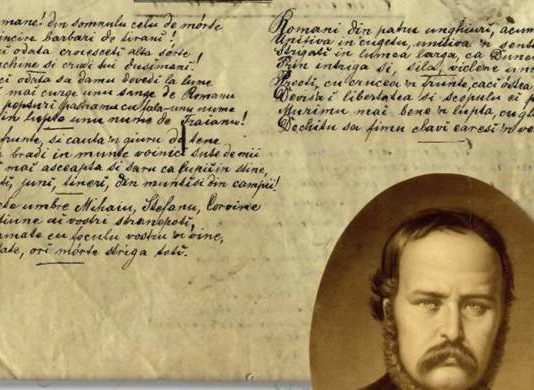 mane! din somnulu celu de mórte
ncire barbari de tirani!
odata croiescetĭ alta sórte,
chine si cruđi tui dusimani!
ci odata sa damu dovedĭ la lume
mai curge unu sange de Romanu
pepturĭ pastramu cu fala-unu nume
in lupte unu nume de Traianu!
frunte, si cauta'n giuru de tene
bradi in munte voinici sute de mii
mai ascepta si saru ca lupii in stine,
ti, juni, tineri, din munti si din campii!
te umbre Mihaiu, Stefanu, Corvine
tiune ai vostri stranepoti,
armate cu foculu vostru'n vine,
tate, ori mórte striga toti.
Romani din patru unghiuri, acum
Unitiva in cugetu, unitiva'n sent
Strigati in lumea larga, ca Dune
Prin intriga si sila, viclene un
Preoti, cu crucea'n frunte, caci óstea
Devisa-i libertatea si scopulu ei p
Murimu mai bene'n lupta, cu gl
Decâtu sa fimu sclavi earesi'n ve